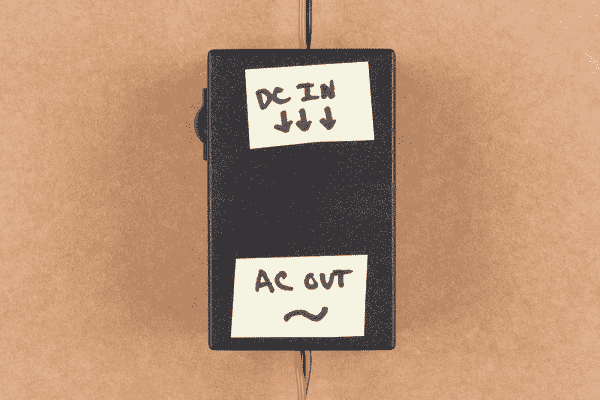 DC IN
↓↓↓
AC OUT
~